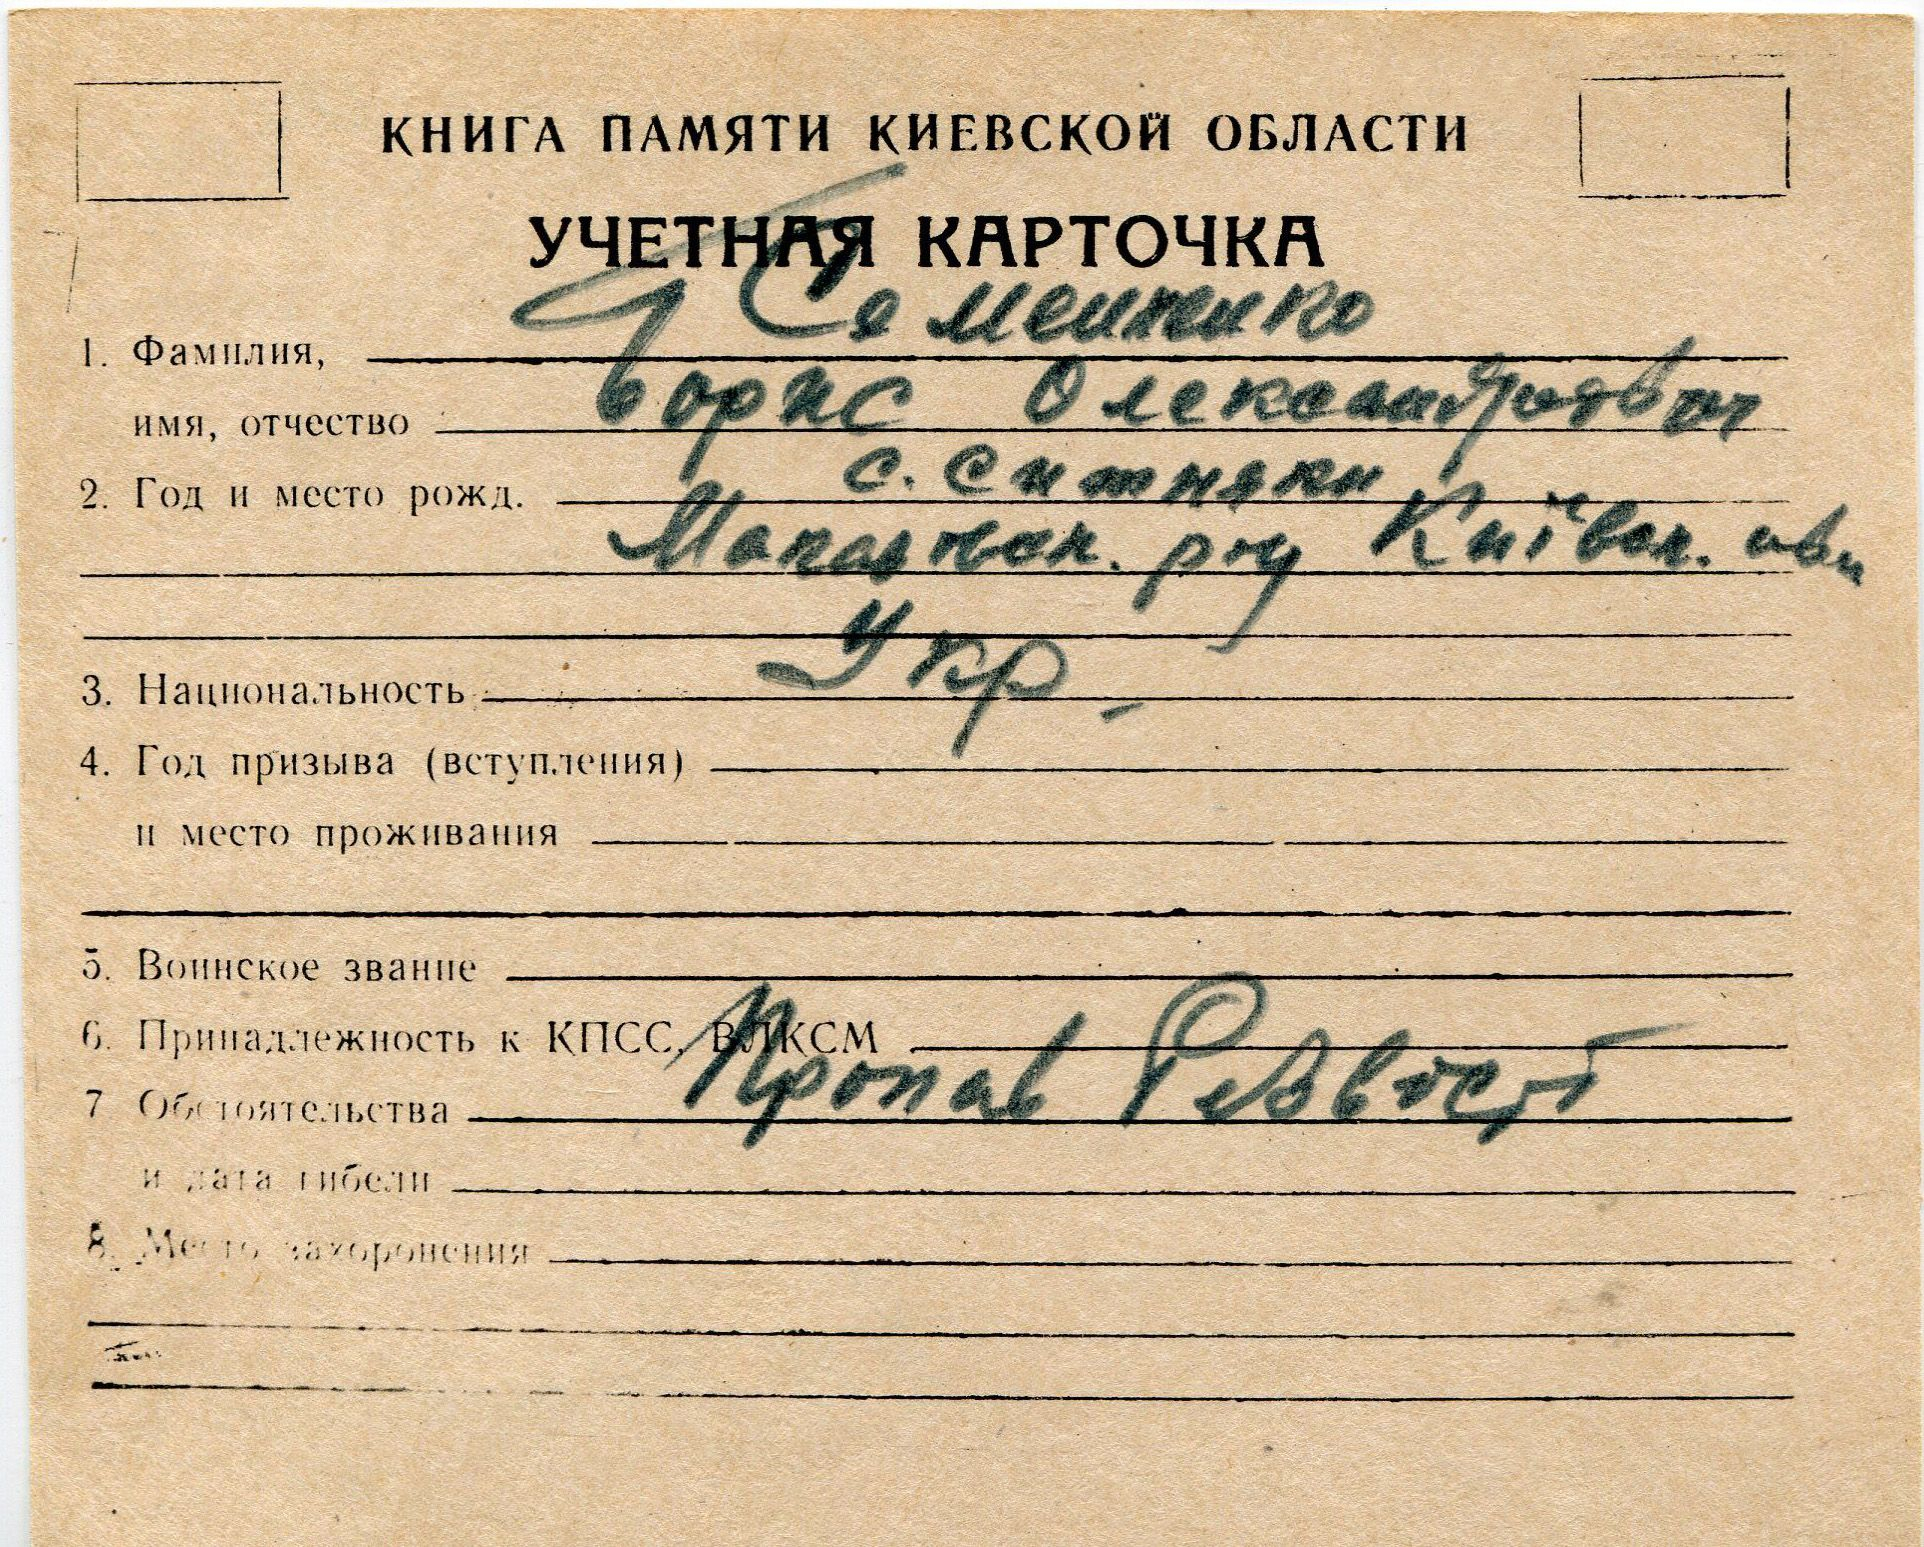 КНИГА ПАМЯТИ КИЕВСКОЙ ОБЛАСТИ
УЧЕТНАЯ КАРТОЧКА
1. Фамилия, Семененко
имя, отчество Борис Олександрович
2. Год и место рожд. с. Ситняки
Макаровск. р-ну Київск. обл
3. Национальность Укр.
4. Год призыва (вступления)
и место проживания
5. Воинское звание
6. Принадлежность к КПСС, ВЛКСМ
7 Обстоятельства Пропав безвісті
и дата гибели
8. Место захоронения